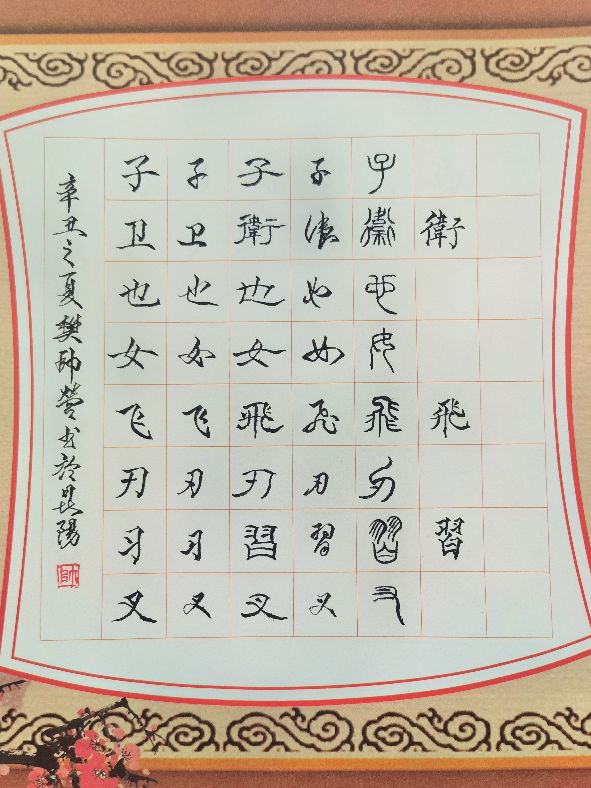 子 子 子 子 子
卫 卫 衛 衛 衛 衛
也 也 也 也 也
女 女 女 女 女
飞 飞 飛 飛 飛 飛
刃 刃 刃 刃 刃
习 习 習 習 習 習
叉 叉 叉 叉 叉
辛丑之夏樊帅营书於昆陽
帅